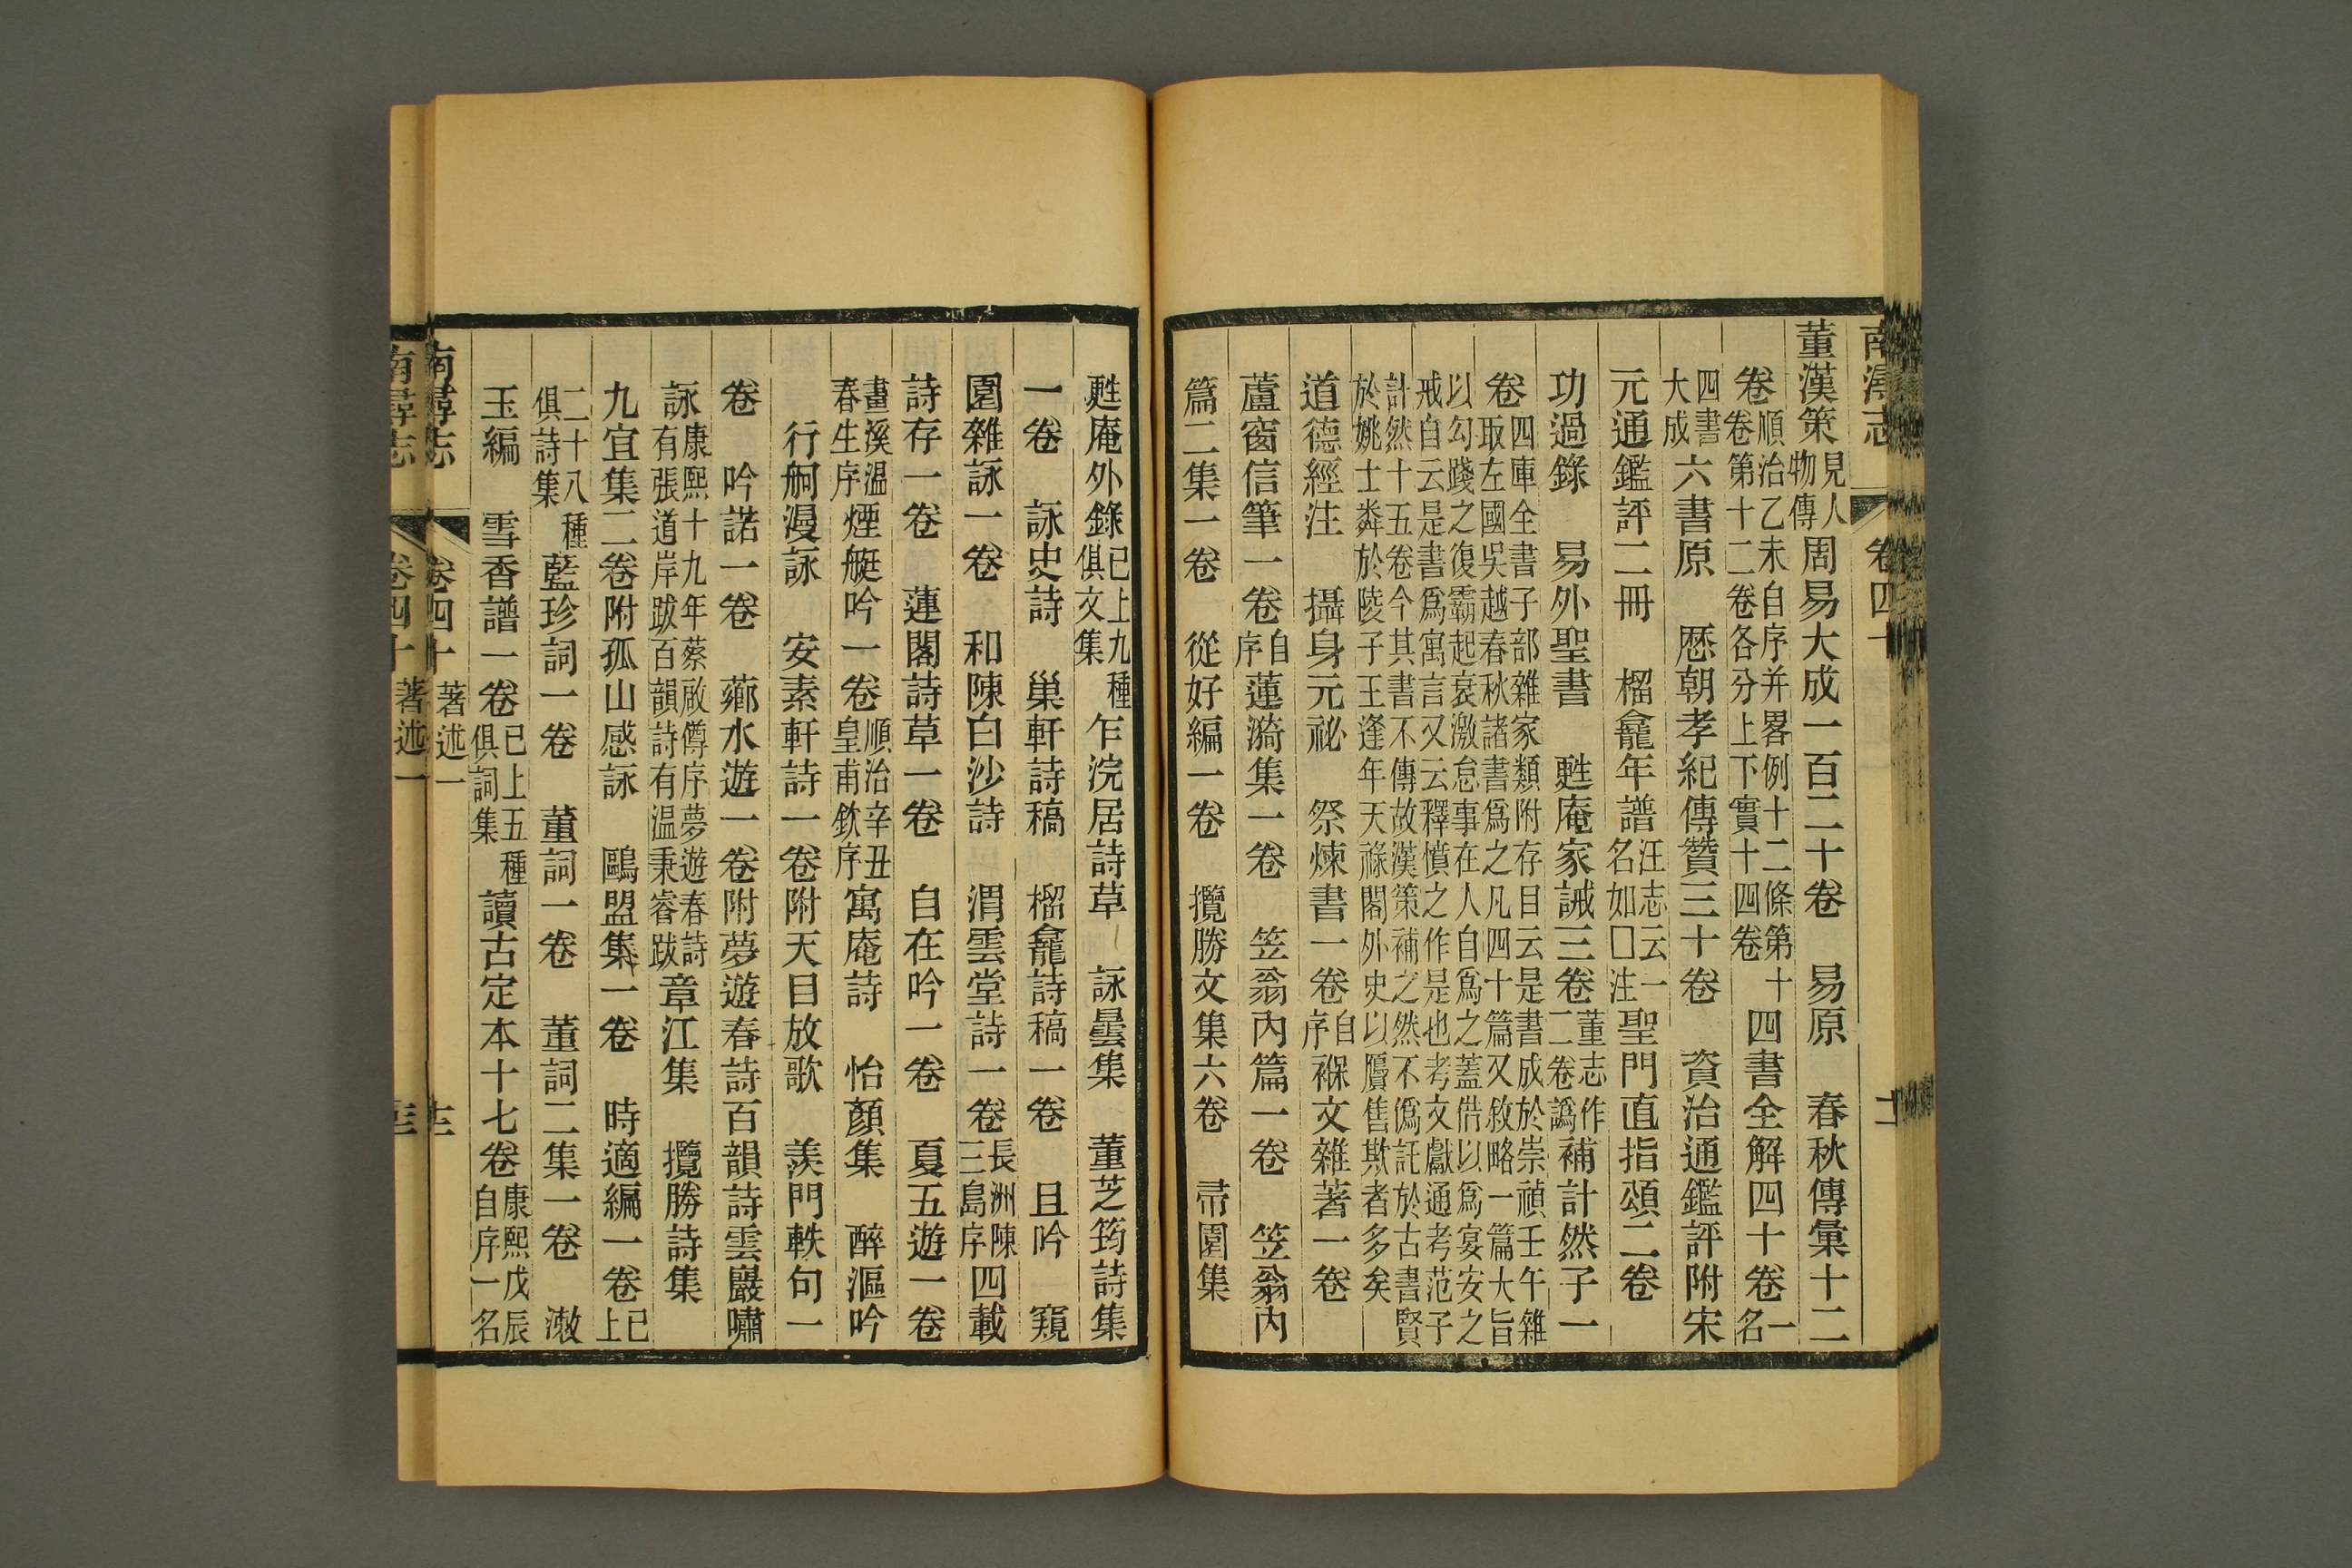 南潯志 卷四十 二
董漢策見人物傳周易大成一百二十卷 易原 春秋傳彙十二
卷順治乙未自序并畧例十二條第十卷第十二卷各分上下實十四卷四書全解四十卷一名
四書大成六書原 歷朝孝紀傳贊三十卷 資治通鑑評附宋
元通鑑評二冊 榴龕年譜汪志云一名如□注聖門直指頌二卷
功過錄 易外聖書 甦庵家誡三卷董志作二卷譌補計然子一
卷四庫全書子部雜家類附存目云是書成於崇禎壬午雜取左國吳越春秋諸書爲之凡四十篇又敘略一篇大旨
以勾踐之復霸起衰激怠事在人自爲之蓋借以爲宴安之戒自云是書爲寓言又云釋憤之作是也考文獻通考范子
計然十五卷今其書不傳故漢策補之然不僞託於古書賢於姚士粦於陵子王逢年天祿閣外史以贋售欺者多矣
道德經注 攝身元祕 祭煉書一卷自序褓文雜著一卷
蘆窗信筆一卷自序蓮漪集一卷 笠翁內篇一卷 笠翁內
篇二集一卷 從好編一卷 攬勝文集六卷 帚園集
甦庵外錄已上九種俱文集乍浣居詩草 詠曇集 董芝筠詩集
一卷 詠史詩 巢軒詩稿 榴龕詩稿一卷 且吟 窺
園雜詠一卷 和陳白沙詩 渭雲堂詩一卷長洲陳三島序四載
詩存一卷 蓮閣詩草一卷 自在吟一卷 夏五遊一卷
畫溪溫春生序煙艇吟一卷順治辛丑皇甫欽序寓庵詩 怡顏集 醉漚吟
行舸漫詠 安素軒詩一卷附天目放歌 羨門軼句一
卷 吟諾一卷 薌水遊一卷附夢遊春詩百韻詩雲巖嘯
詠康熙十九年蔡啟僔序夢遊春詩有張道岸跋百韻詩有温秉睿跋章江集 攬勝詩集
九宜集二卷附孤山感詠 鷗盟集一卷 時適編一卷已上
二十八種俱詩集藍珍詞一卷 董詞一卷 董詞二集一卷 漱
玉編 雪香譜一卷已上五種俱詞集讀古定本十七卷康熙戊辰自序一名
南潯志 卷四十 著述一 十二
南潯志 卷四十 著述一 十三